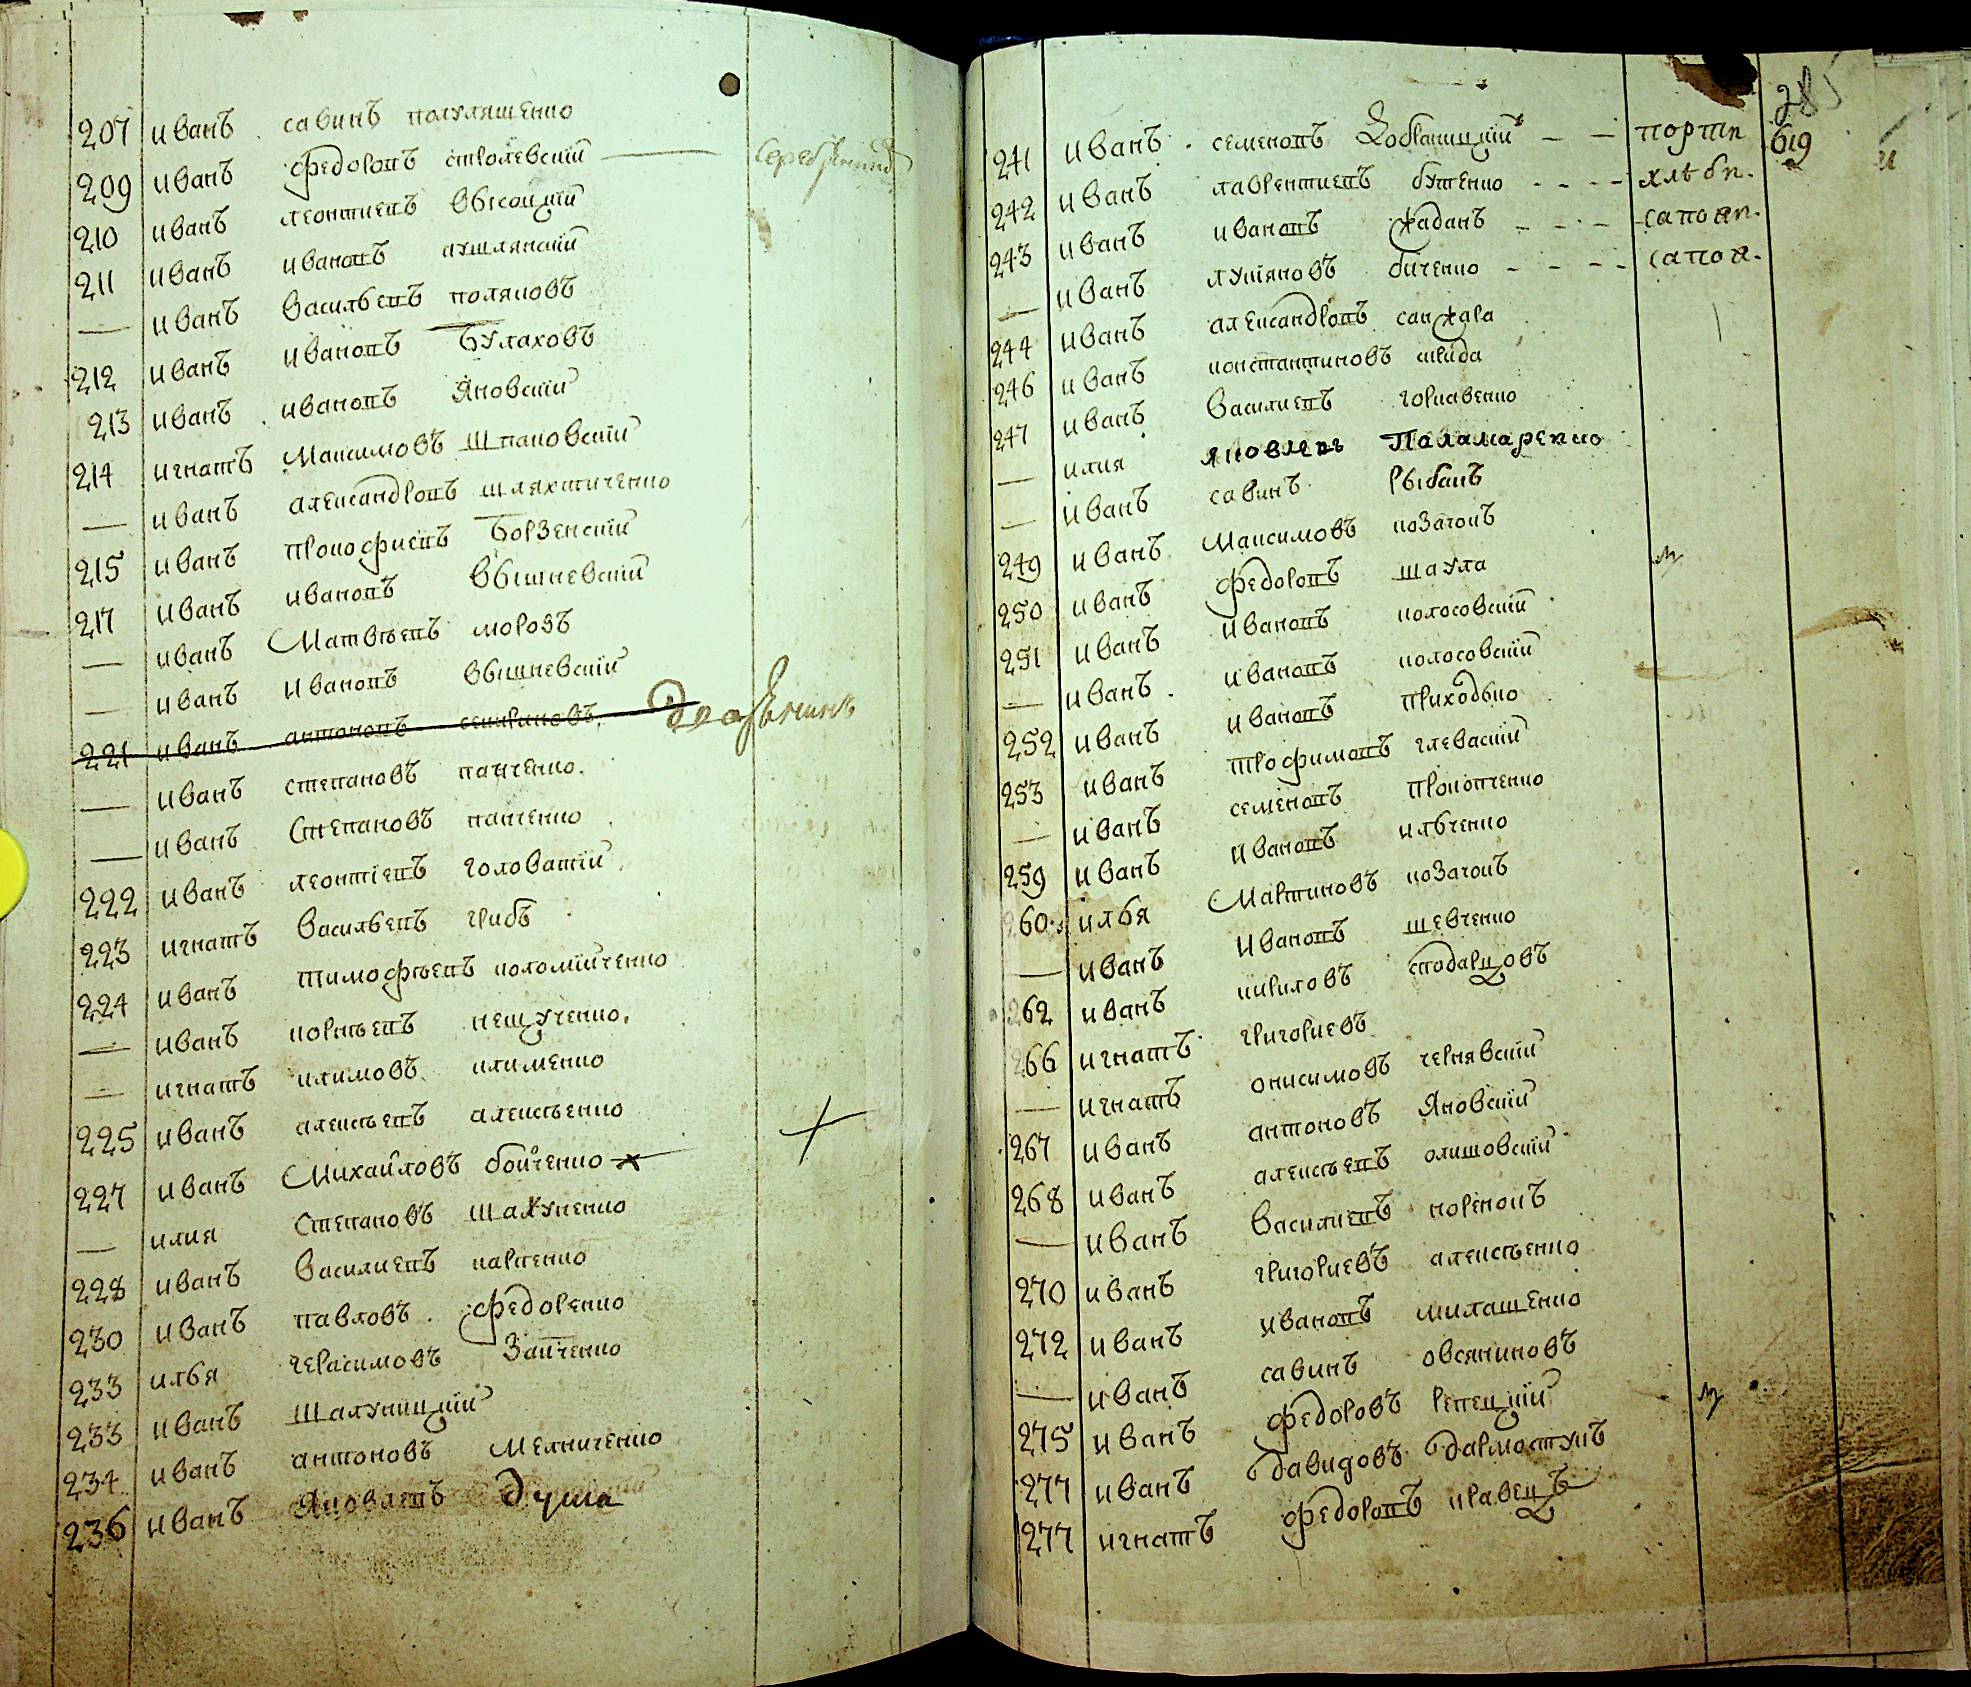 207 иванъ савинъ полуляшенко
209 иванъ федоровъ стролевскій
210 иванъ леонтиевъ высоцкій
211 иванъ ивановъ кушлянскій
— иванъ васильевъ поляковъ
212 иванъ ивановъ Булаховъ
213 иванъ ивановъ Яновскій
214 игнатъ Максимовъ Шпаковскій
— иванъ александровъ шляхтиченко
215 иванъ прокофиевъ Борзенскій
217 иванъ ивановъ вышневскій
— иванъ Матвѣевъ морозъ
— иванъ Ивановъ вышневскій
221 иванъ антоновъ
— иванъ степановъ панченко.
— иванъ Степановъ панченко
222 иванъ леонтіевъ головатій
223 игнатъ васильевъ грибъ
224 иванъ тимофѣевъ коломійченко
— иванъ корнѣевъ кещученко.
— игнатъ климовъ клименко
225 иванъ алексѣевъ алексѣенко
227 иванъ Михайловъ бойченко
— илия Степановъ шахуненко
228 иванъ василиевъ карпенко
230 иванъ павловъ федоренко
233 илья герасимовъ Заиченко
233 иванъ Шалуницкій
234 иванъ антоновъ Мелниченко
236 иванъ Яковлевъ Душа
285
619
241 иванъ семеновъ Добраницкій — — портн
242 иванъ лаврентиевъ бутенко - - - - хлѣбн.
243 иванъ ивановъ жаданъ - - - сапожн.
— иванъ лукяновъ биченко - - - - сапож.
244 иванъ александровъ санжара
246 иванъ константиновъ шкида
247 иванъ василиевъ горкавенко
— илия яковлевъ Паламаренко
— иванъ савинъ рыбакъ
249 иванъ Максимовъ козачокъ
250 иванъ федоровъ шаула
251 иванъ ивановъ колосовскій
— иванъ ивановъ колосовскій
252 иванъ ивановъ приходько
253 иванъ трофимовъ глеваскій
— иванъ семеновъ прокопченко
259 иванъ ивановъ ильченко
260 илья Мартиновъ козачокъ
— иванъ Ивановъ шевченко
262 иванъ кириловъ сподарцовъ
266 игнатъ григориевъ
— игнатъ онисимовъ чернявскій
267 иванъ антоновъ Яновскій
268 иванъ алексѣевъ олишовскій
— иванъ василиевъ коренокъ
270 иванъ григориевъ алексѣенко
272 иванъ ивановъ милашенко
— иванъ савинъ овсяниковъ
275 иванъ федоровъ репецкій
277 иванъ давидовъ дармостукъ
277 игнатъ федоровъ кравецъ